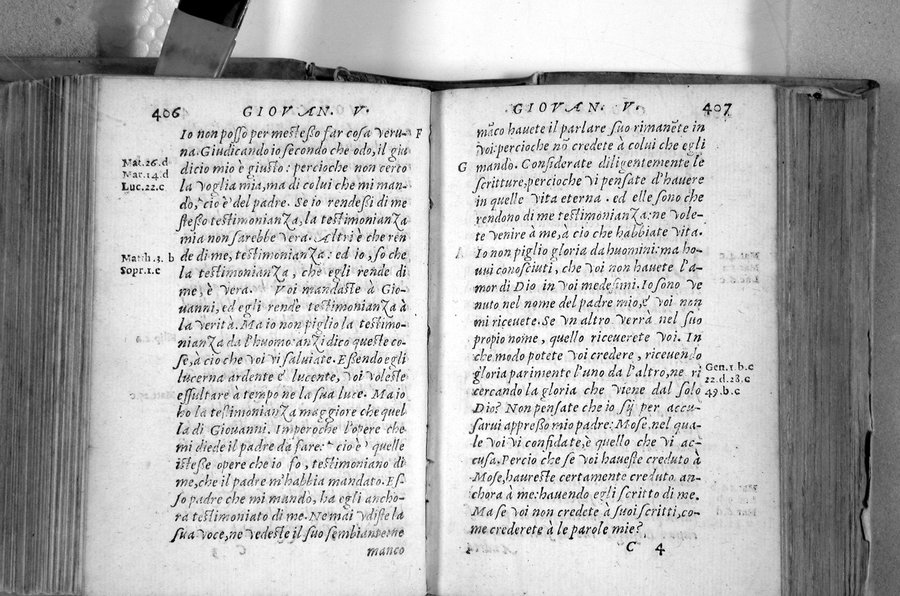 406 GIOVAN. V.
Io non posso per me stesso far cosa veru- F
na. Giudicando io secondo che odo, il giu
dicio mio è giusto: percioche non cerco
Mat.26.d
Mar.14.d
Luc.22.c
la voglia mia, ma di colui che mi man-
dò, cio è del padre. Se io rendessi di me
stesso testimonianza, la testimonianza
mia non sarebbe vera. Altri è che ren
Matth.3.b
Sopr.1.c
de di me, testimonianza: ed io, so che
la testimonianza, che egli rende di
me, è vera. Voi mandaste à Gio-
uanni, ed egli rende testimonianza à
la verità. Ma io non piglio la testimo-
nianza da l'huomo: anzi dico queste co-
se, à cio che voi vi saluiate. Essendo egli
lucerna ardente è lucente, voi voleste
essultare a tempo ne la sua luce. Ma io
ho la testimonianza maggiore che quel
la di Giouanni. Imperoche l'opere che
mi diede il padre da fare: cio è quelle
istesse opere che io fo, testimoniano di
me, che il padre m'habbia mandato. Es-
so padre che mi mandò, ha egli ancho-
ra testimoniato di me. Ne mai vdiste la
sua voce, ne vedeste il suo sembiante: ne
manco
GIOVAN. V. 407
mãco hauete il parlare suo rimanẽte in
voi: percioche nõ credete à colui che egli
G mandò. Considerate diligentemente le
scritture, percioche vi pensate d'hauere
in quelle vita eterna. ed elle sono che
rendono di me testimonianza: ne vole-
te venire à me, à cio che habbiate vita.
Io non piglio gloria da huomini: ma ho-
uui conosciuti, che voi non hauete l'a-
mor di Dio in voi medesimi. Io sono ve
nuto nel nome del padre mio, è voi non
mi riceuete. Se vn altro verrà nel suo
propio nome, quello riceuerete voi. In
che modo potete voi credere, riceuendo
gloria parimente l'uno da l'altro, ne ri
cercando la gloria che viene dal solo
Gen.1.b.c
22.d.28.c
49.b.c
Dio? Non pensate che io sij per accu-
sarui appresso mio padre: Mose, nel qua-
le voi vi confidate, è quello che vi ac-
cusa. Percio che se voi haueste creduto à
Mose, haureste certamente creduto an-
chora à me: hauendo egli scritto di me.
Ma se voi non credete à suoi scritti, co-
me crederete à le parole mie?
C 4